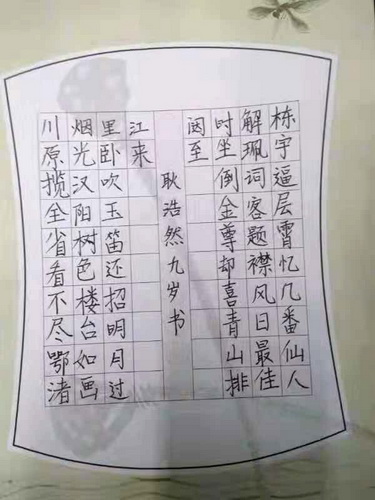 栋宇逼层霄忆几番仙人
解珮词客题襟风日最佳
时坐倒金尊却喜青山排
闼至
川原揽全省看不尽鄂渚
烟光汉阳树色楼台如画
里卧吹玉笛还招明月过
江来
耿浩然九岁书